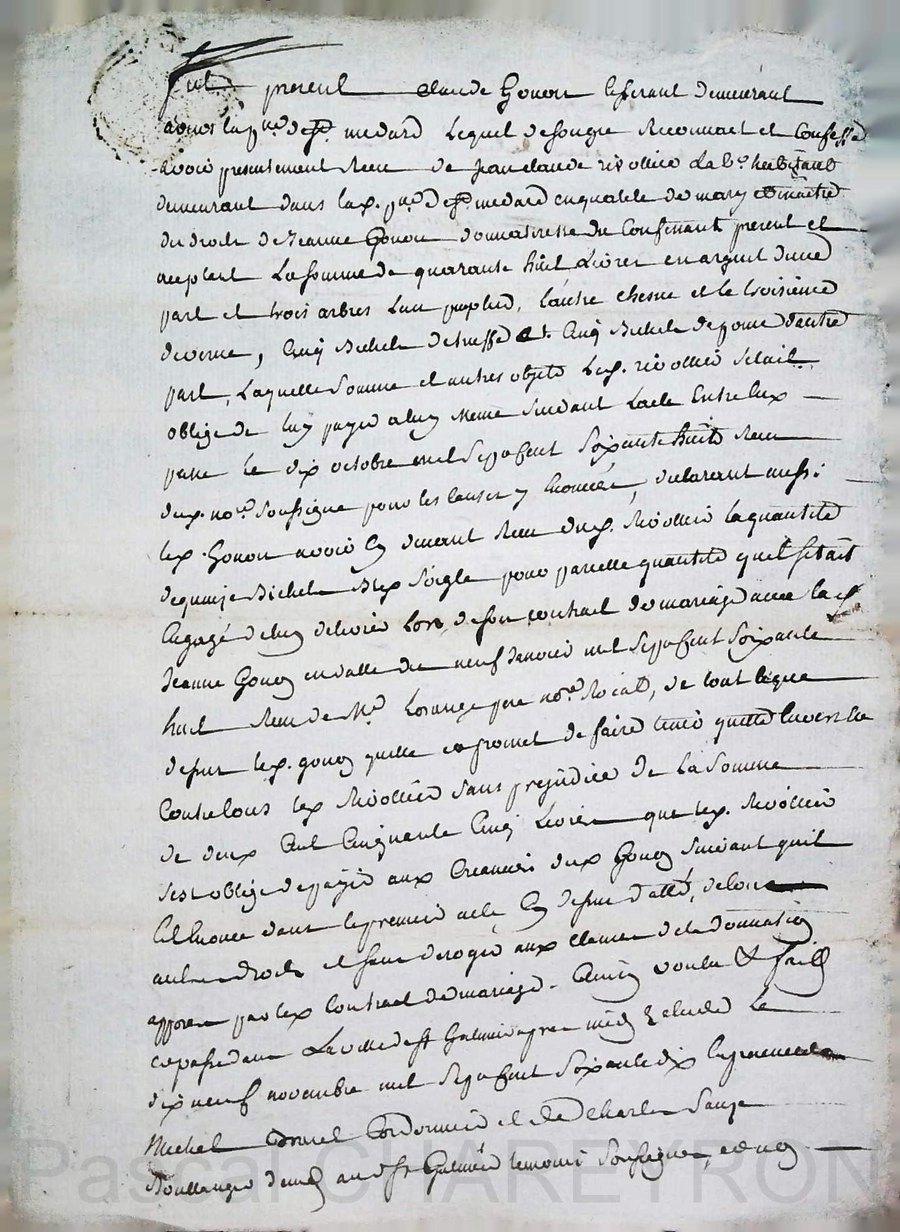 Fut present Claude Gonon tisserant demeurant
en la p.sse de St medard Lequel de son gre Reconnoet et Confesse
avoir presentement Receu de jean claude rivollier Lab.r habitant
demeurant dans lad. p.sse de St medard en qualité de mary et maitre
des droits de Jeanne Gonon donnatresse du Confessant present et
acceptant La somme de quarante huit Livres en argent d'une
part et trois arbres L'un peuplié, L'autre chesne et le troisieme
de verne, Cinq Bichets de truffe et Cinq Bichets de pome d'autre
part, Laquelle Somme et autres objets Led. rivollier S'etait
obligé de luy payer a luy meme Suivant L'acte Entre Eux
passé le dix octobre mil Sept Cent Soixante huit Receu
du d. no.re Soussigné pour les causes y Enoncées, declarant aussi
led. Gonon avoir Cy devant Receu dud. Rivollier la quantité
de quinze Bichets Bled Seigle pour pareille quantité qu'il s'etait
Engagé de luy delivrer Lors de son contrat de mariage avec lad.
Jeanne Gonon en datte du neuf Janvier mil Sept Cent Soixante
huit Receu de M.e Lorange pere no.re Roial, de tout Ce que
dessus led. gonon quitte et promet de faire tenir quitte Envers Et
Contre tous led. Rivollier Sans prejudice de La Somme
de deux Cent Cinquante Cinq Livres que led. Rivollier
s'est obligé de payer aux Creanciers dud. Gonon Suivant qu'il
est Enoncé dans le premier acte Cy dessus datté, de tous
autres droits et sans deroger aux Clauses de la donnation
apposée par led. Contrat de mariage. Ainsi voulu & fait
et passé dans La ville de St Galmier apres midy Le
dix neuf novembre mil Sept Cent Soixante dix En presence de
Michel Cordonnier et de Charles
Boullanger dem.t aud. St Galmier temoins Soussignés,
Pascal CHAREYRON